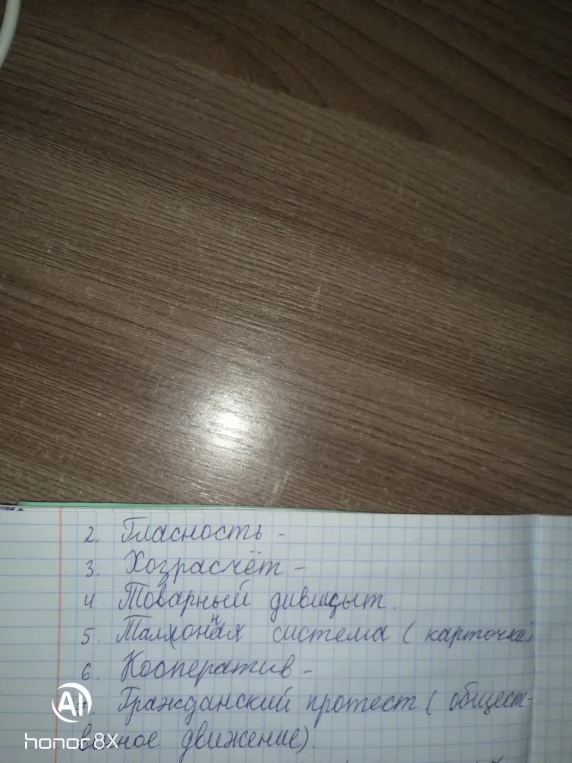 2. Гласность -
3. Хозрасчёт -
4. Товарный дивицыт.
5. Талхонная система (карточки)
6. Кооператив -
Гражданский протест ( общест-
венное движение).
AI
honor 8X